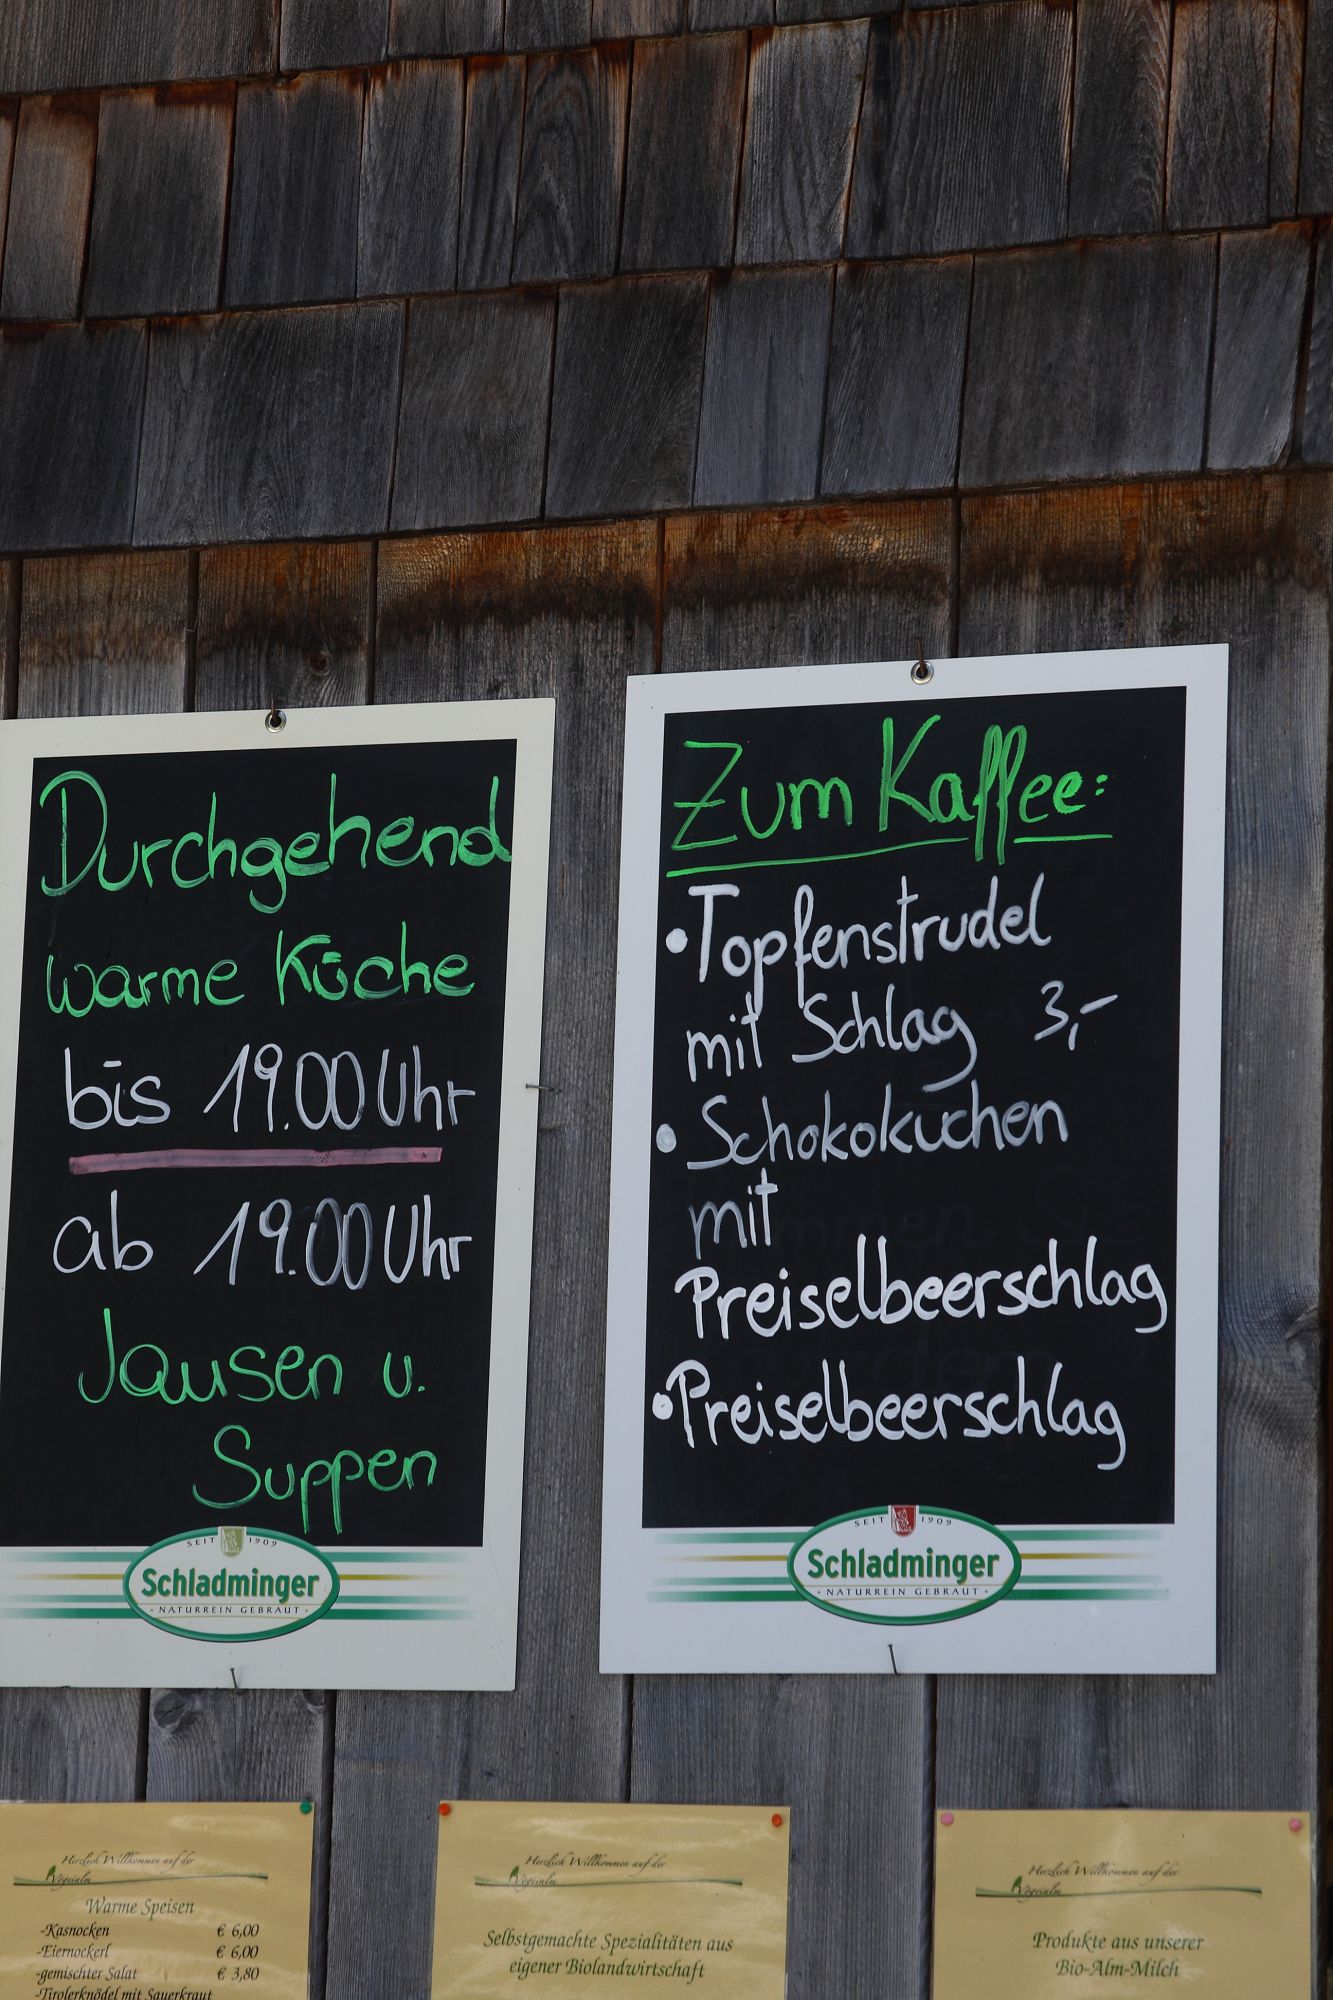 Durchgehend
warme Küche
bis 19.00 Uhr
ab 19.00 Uhr
Jausen u.
Suppen
SEIT 1909
Schladminger
· NATURREIN GEBRAUT ·
Zum Kaffee:
• Topfenstrudel
mit Schlag 3,-
• Schokokuchen
mit
Preiselbeerschlag
• Preiselbeerschlag
SEIT 1909
Schladminger
· NATURREIN GEBRAUT ·
Herzlich Willkommen auf der
Vögeialm
Warme Speisen
-Kasnocken € 6,00
-Eiernockerl € 6,00
-gemischter Salat € 3,80
-Tirolerknödel mit Sauerkraut
Herzlich Willkommen auf der
Vögeialm
Selbstgemachte Spezialitäten aus
eigener Biolandwirtschaft
Herzlich Willkommen auf der
Vögeialm
Produkte aus unserer
Bio-Alm-Milch